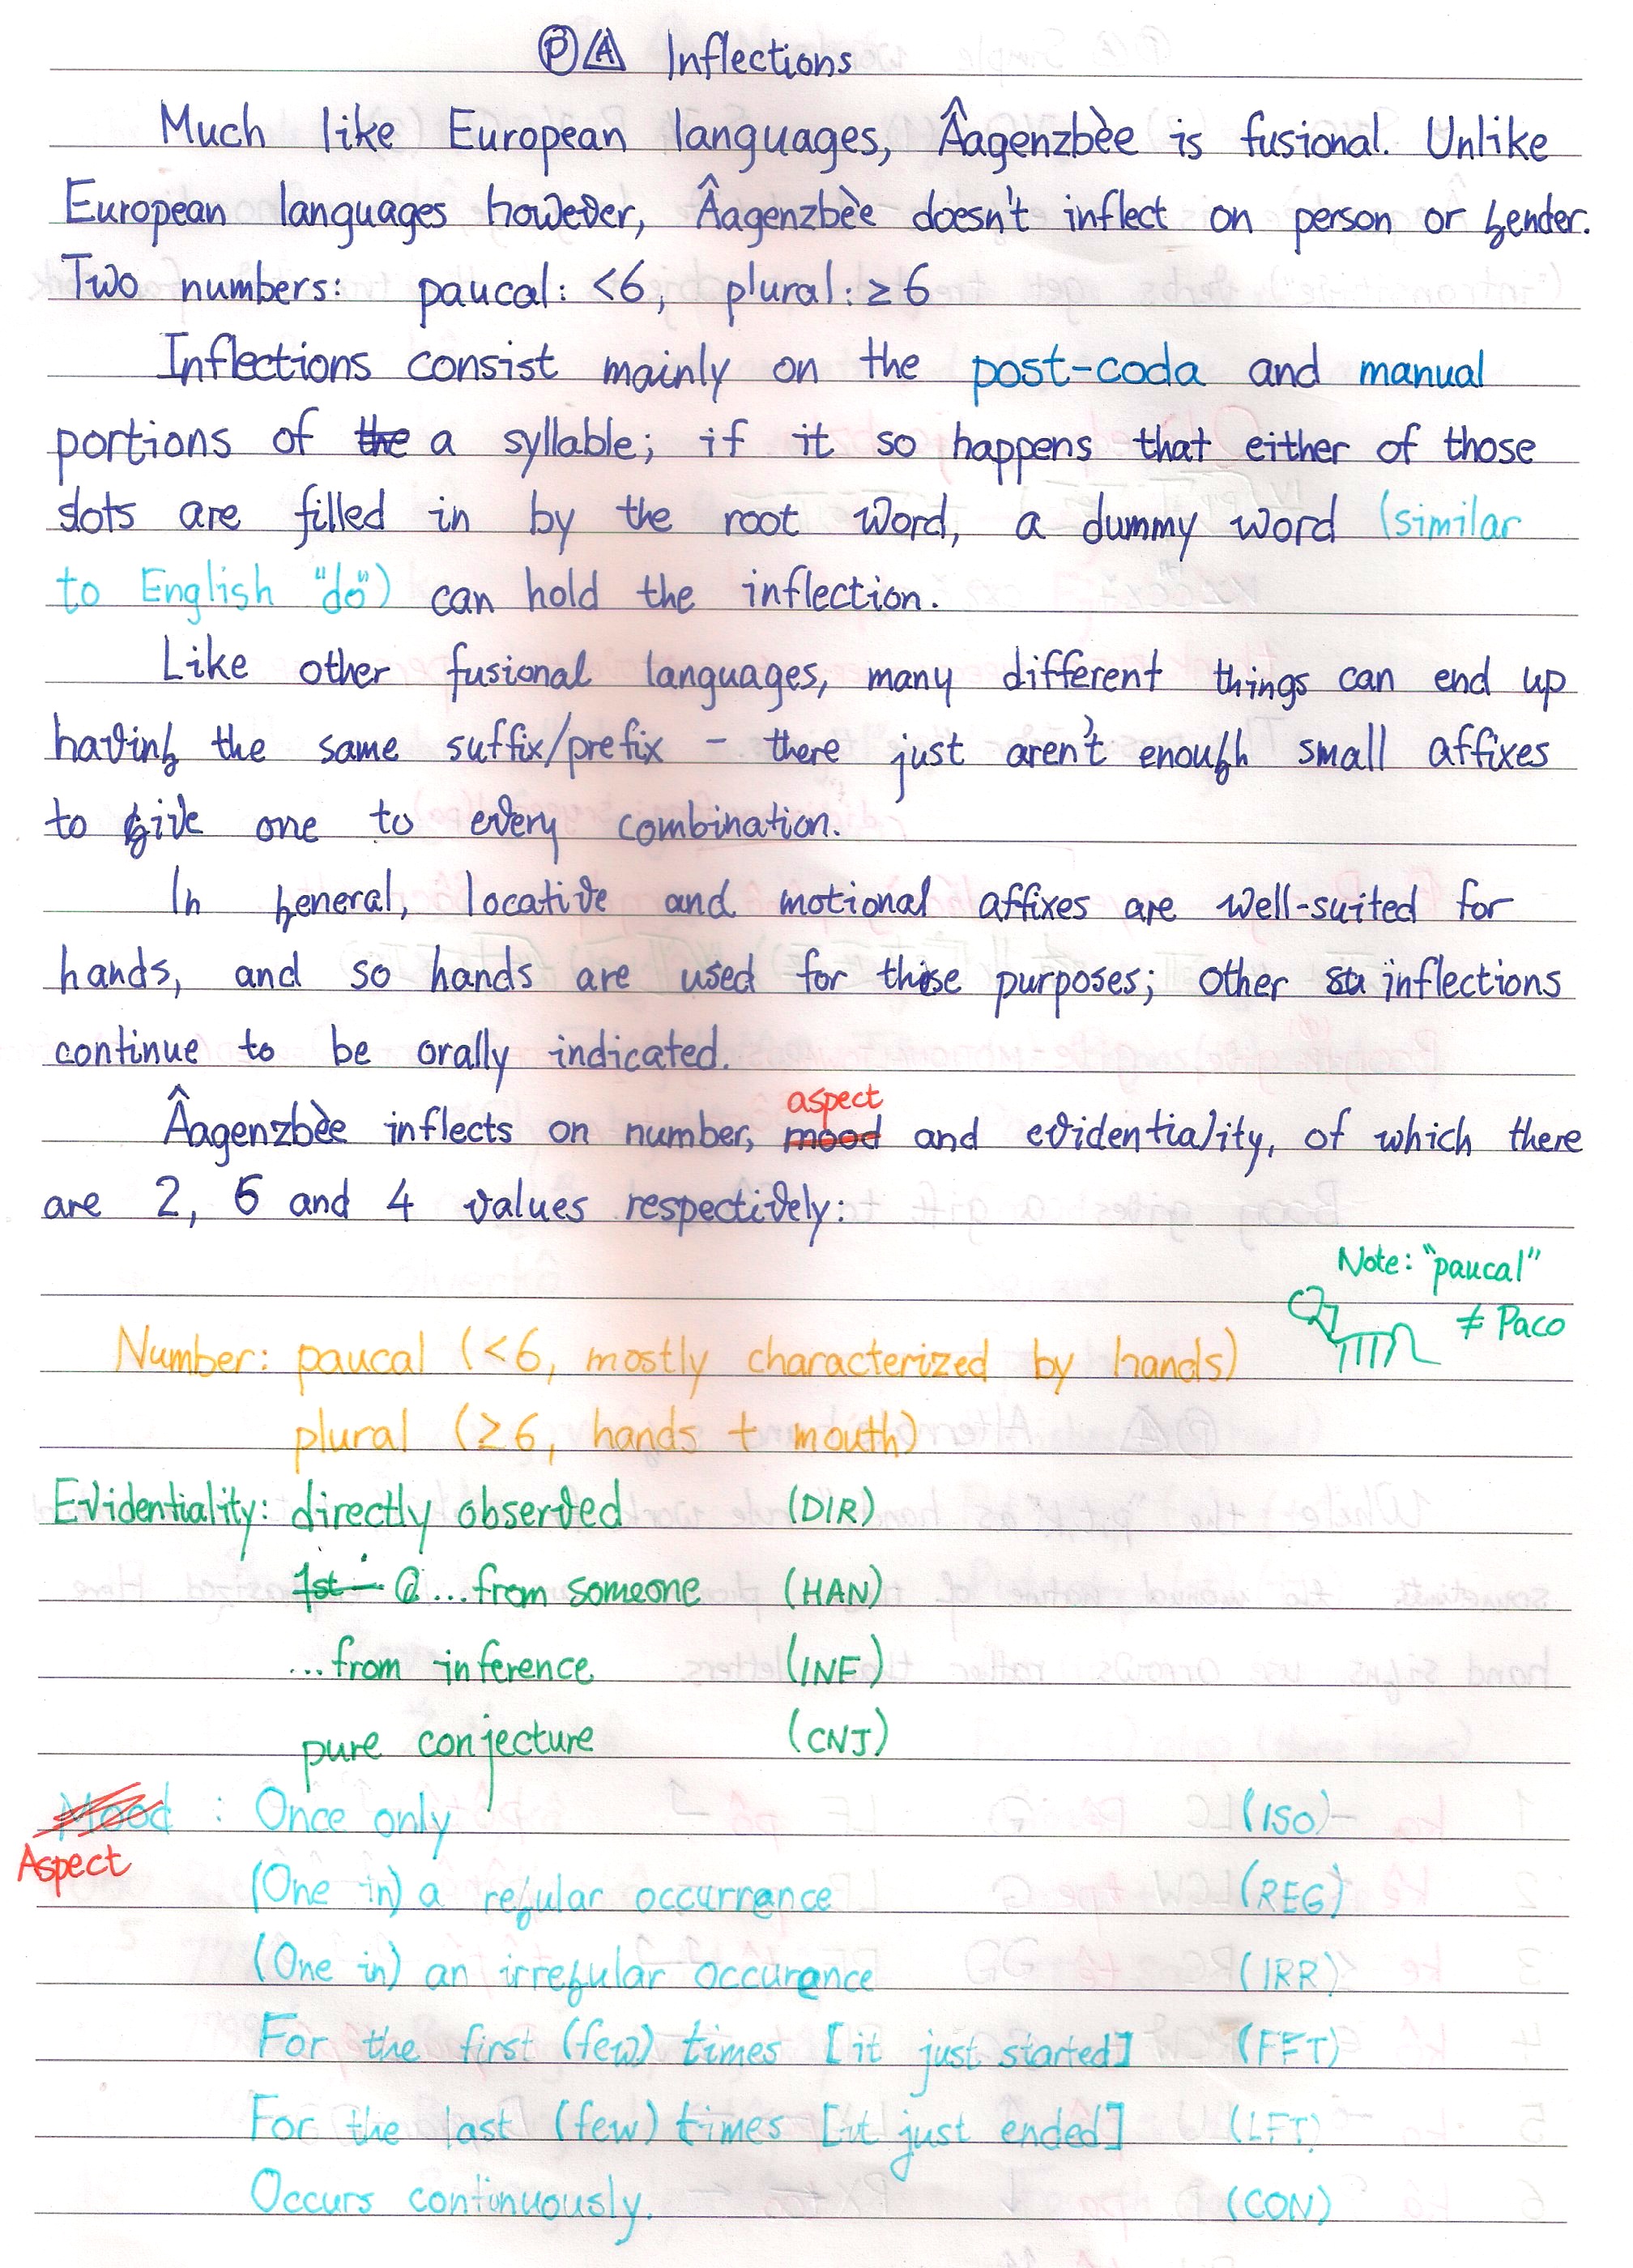 Ⓟ A Inflections
Much like European languages, Âagenzbèe is fusional. Unlike
European languages however, Âagenzbèe doesn't inflect on person or gender.
Two numbers: paucal: <6, plural: ≥6
Inflections consist mainly on the post-coda and manual
portions of the a syllable; if it so happens that either of those
slots are filled in by the root word, a dummy word (similar
to English "do") can hold the inflection.
Like other fusional languages, many different things can end up
having the same suffix/prefix - there just aren't enough small affixes
to give one to every combination.
In general, locative and motional affixes are well-suited for
hands, and so hands are used for these purposes; other inflections
continue to be orally indicated.
aspect
Âagenzbèe inflects on number, mood and evidentiality, of which there
are 2, 6 and 4 values respectively:
Note: "paucal"
≠ Paco
Number: paucal (<6, mostly characterized by hands)
plural (≥6, hands + mouth)
Evidentiality: directly observed (DIR)
1st ...from someone (HAN)
...from inference (INF)
pure conjecture (CNJ)
Mood : Once only (ISO)
Aspect
(One in) a regular occurrance (REG)
(One in) an irregular occurance (IRR)
For the first (few) times [it just started] (FFT)
For the last (few) times [it just ended] (LFT)
Occurs continuously. (CON)